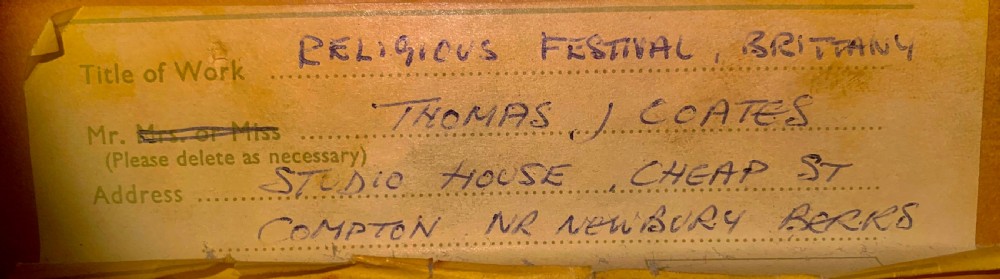 Title of Work RELIGIOUS FESTIVAL, BRITTANY
Mr. Mrs. or Miss THOMAS, J COATES
(Please delete as necessary)
Address STUDIO HOUSE, CHEAP ST
COMPTON NR NEWBURY BERKS